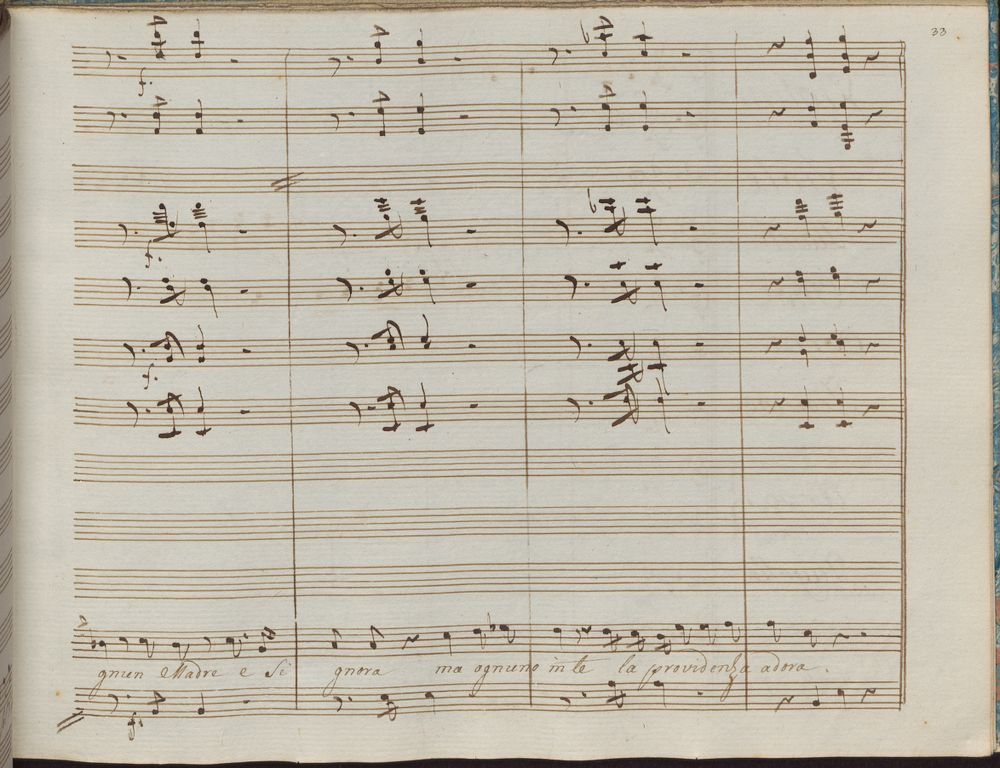 33
f.
f.
f.
gnun Madre e Si gnora ma ognuno in te la providenza adora.
f.